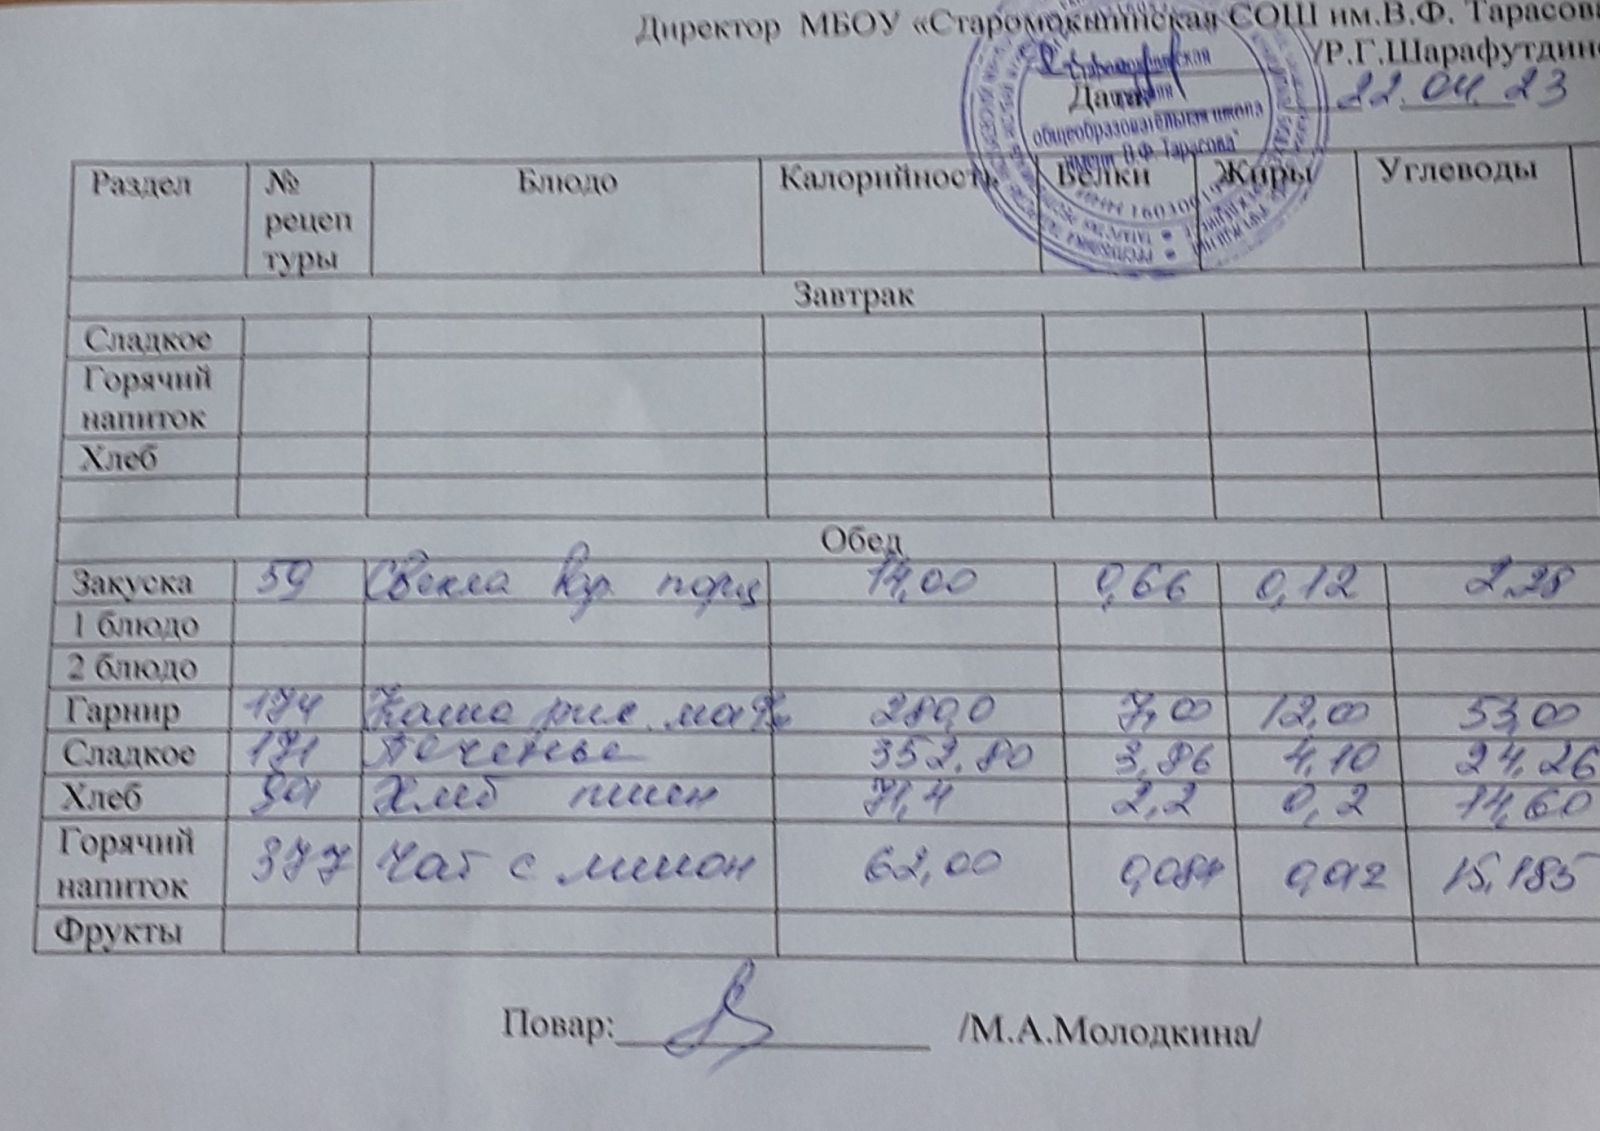 Директор МБОУ «Старомокшинская СОШ им.В.Ф. Тарасова
/Р.Г.Шарафутдино
Дата 22.04.23
общеобразовательная школа
имени В.Ф. Тарасова"
Раздел № рецептуры Блюдо Калорийность Белки Жиры Углеводы
Завтрак
Сладкое
Горячий
напиток
Хлеб
Обед
Закуска 59 Свекла порц 14,00 0,66 0,12 2,28
1 блюдо
2 блюдо
Гарнир 174 Каша рис. 280,0 7,00 12,00 53,00
Сладкое 171 Печенье 352,80 3,86 4,10 24,26
Хлеб Хлеб пшен 71,4 2,2 0,2 14,60
Горячий
напиток 377 Чай с лимон 62,00 15,185
Фрукты
Повар: /М.А.Молодкина/